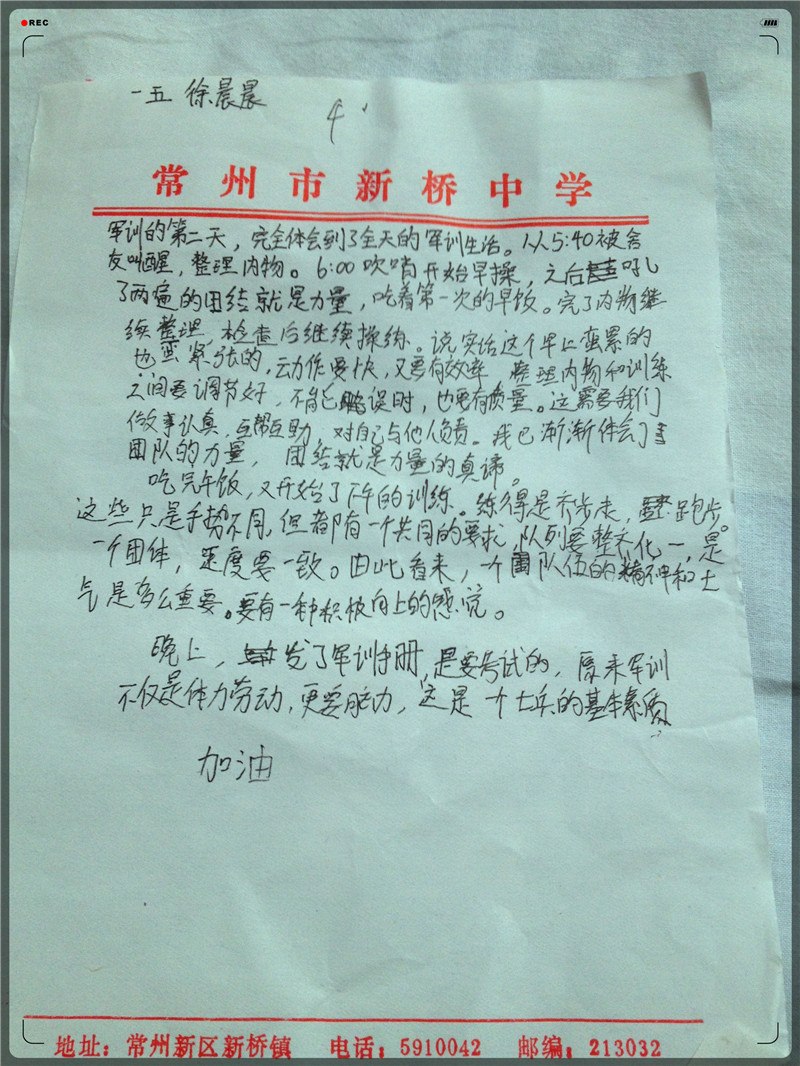 REC
一五 徐晨晨
4
常州市新桥中学
军训的第二天，完全体会到了全天的军训生活。从5:40被舍
友叫醒，整理内物。6:00吹哨开始早操，之后吼
了两遍的团结就是力量，吃着第一次的早饭。完了内物继
续整理，检查后继续操练。说实话这个早上蛮累的
也蛮紧张的，动作要快，又要有效率 整理内物和训练
之间要调节好，不能误时，也要有质量。这需要我们
做事认真，互帮互助，对自己与他人负责。我已渐渐体会了
团队的力量，团结就是力量的真谛。
吃完午饭，又开始了下午的训练。练得是齐步走，跑步。
这些只是手势不同，但都有一个共同的要求，队列要整齐化一，是
一个团体，速度要一致。因此看来，一个团队伍的精神和士
气是多么重要。要有一种积极向上的感觉。
晚上，发了军训手册，是要考试的，原来军训
不仅是体力劳动，更要脑力，这是一个士兵的基本素质
加油
地址：常州新区新桥镇 电话：5910042 邮编：213032